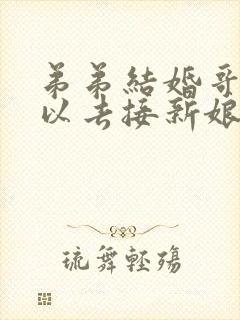 弟弟結婚哥
以去接新娘
琉舞輕殤